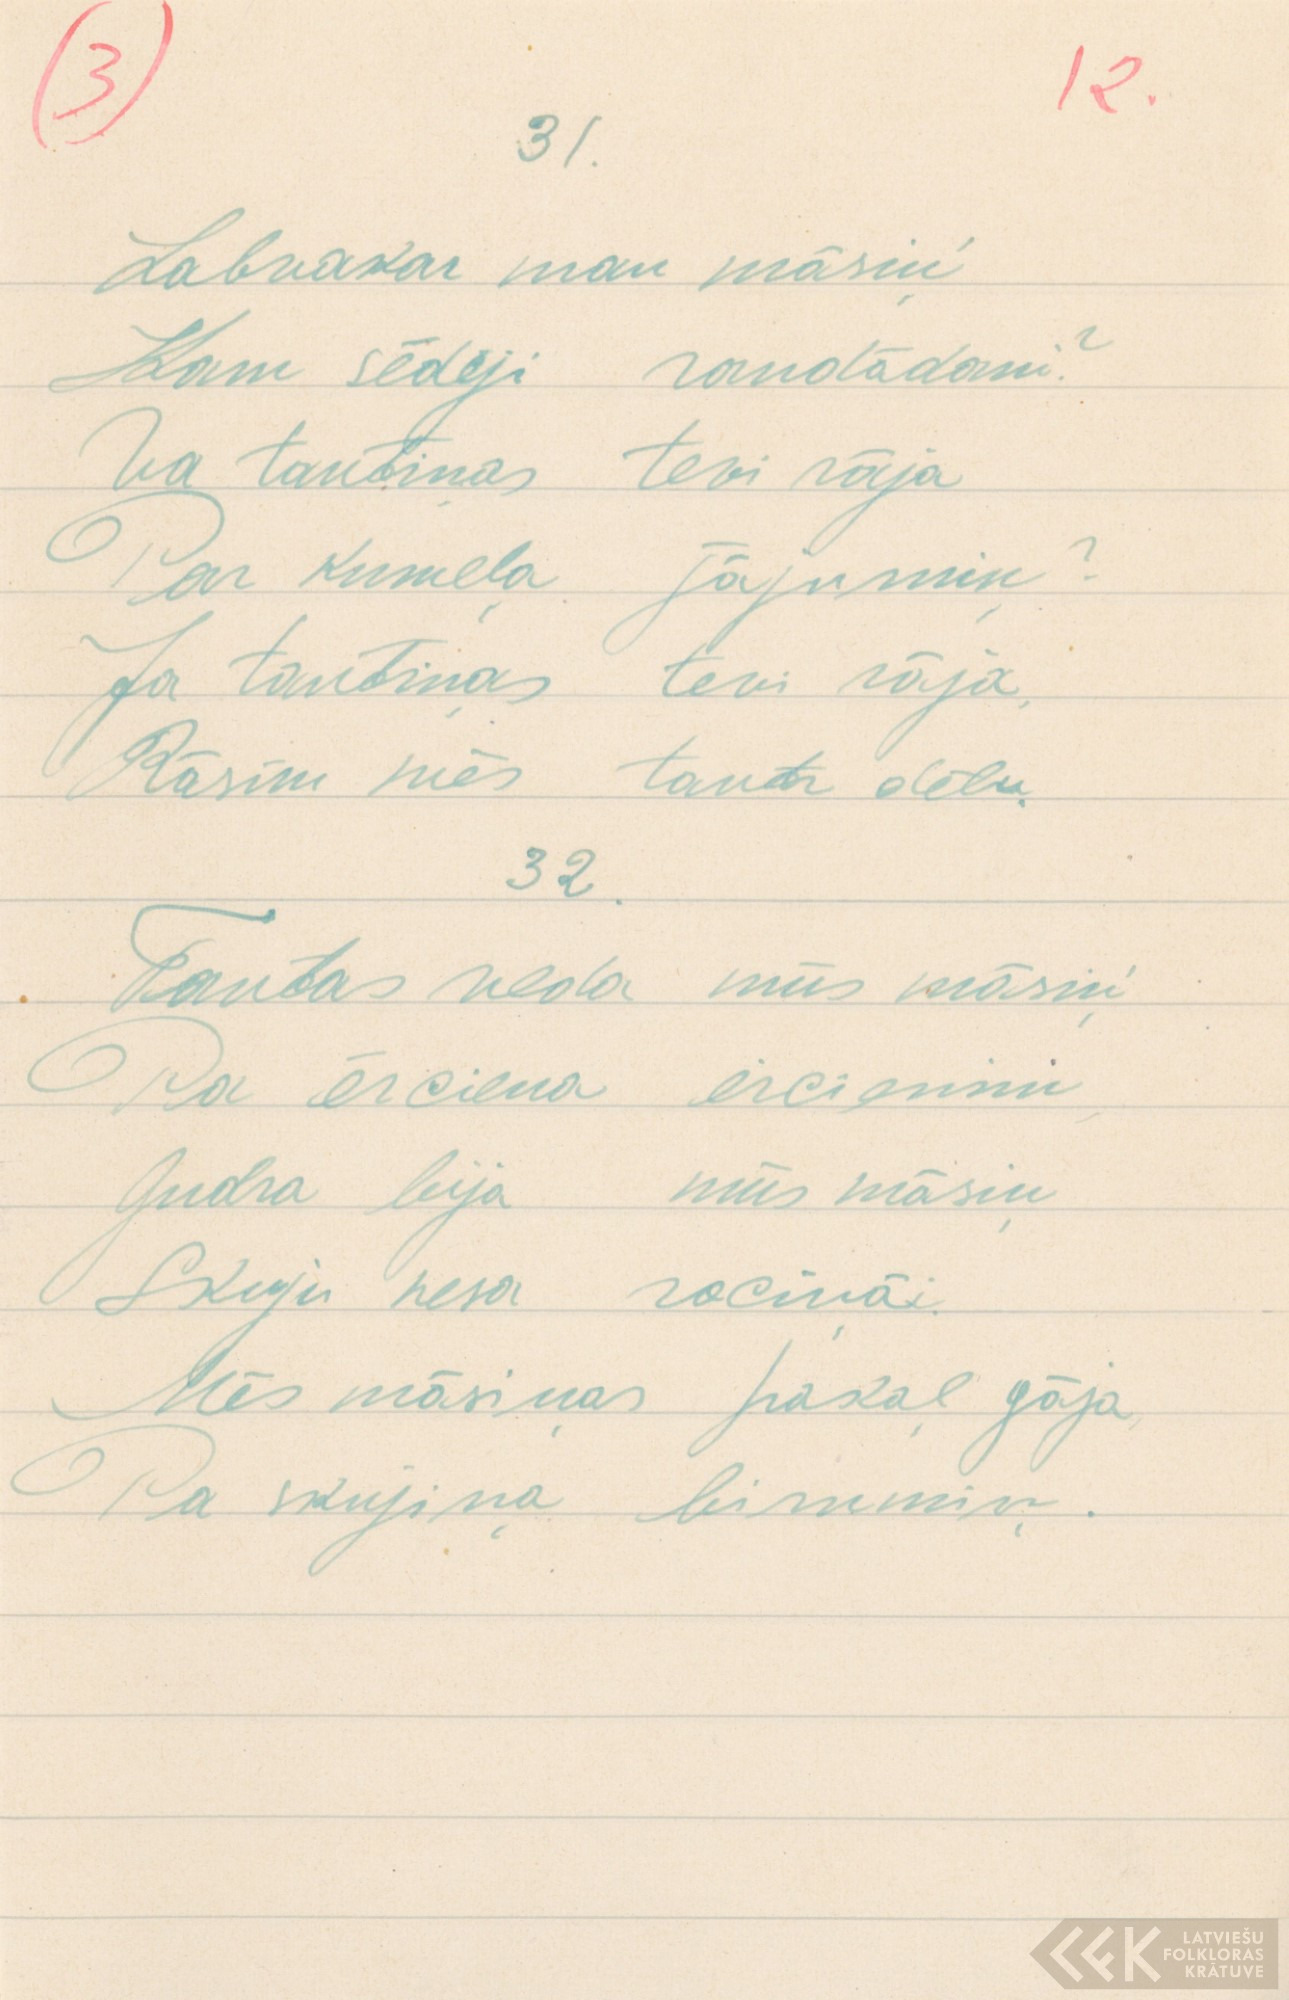 3 12.
31.
Labvakar man māsiņ'
Kam sēdēji raudādami?
Va tautiņas tevi rāja
Par kumeļa jājumiņ?
Ja tautiņas tevi rāja,
Rāsim mēs tautu dēlu.
32.
Tautas veda mūs māsiņ'
Pa ērciena ērcienini,
Gudra bija mūs māsiņ
Skuju nesa rociņāi.
Mēs māsiņas pakaļ gāja,
Pa skujiņa birumiņ.
LATVIEŠU
FOLKLORAS
KRĀTUVE